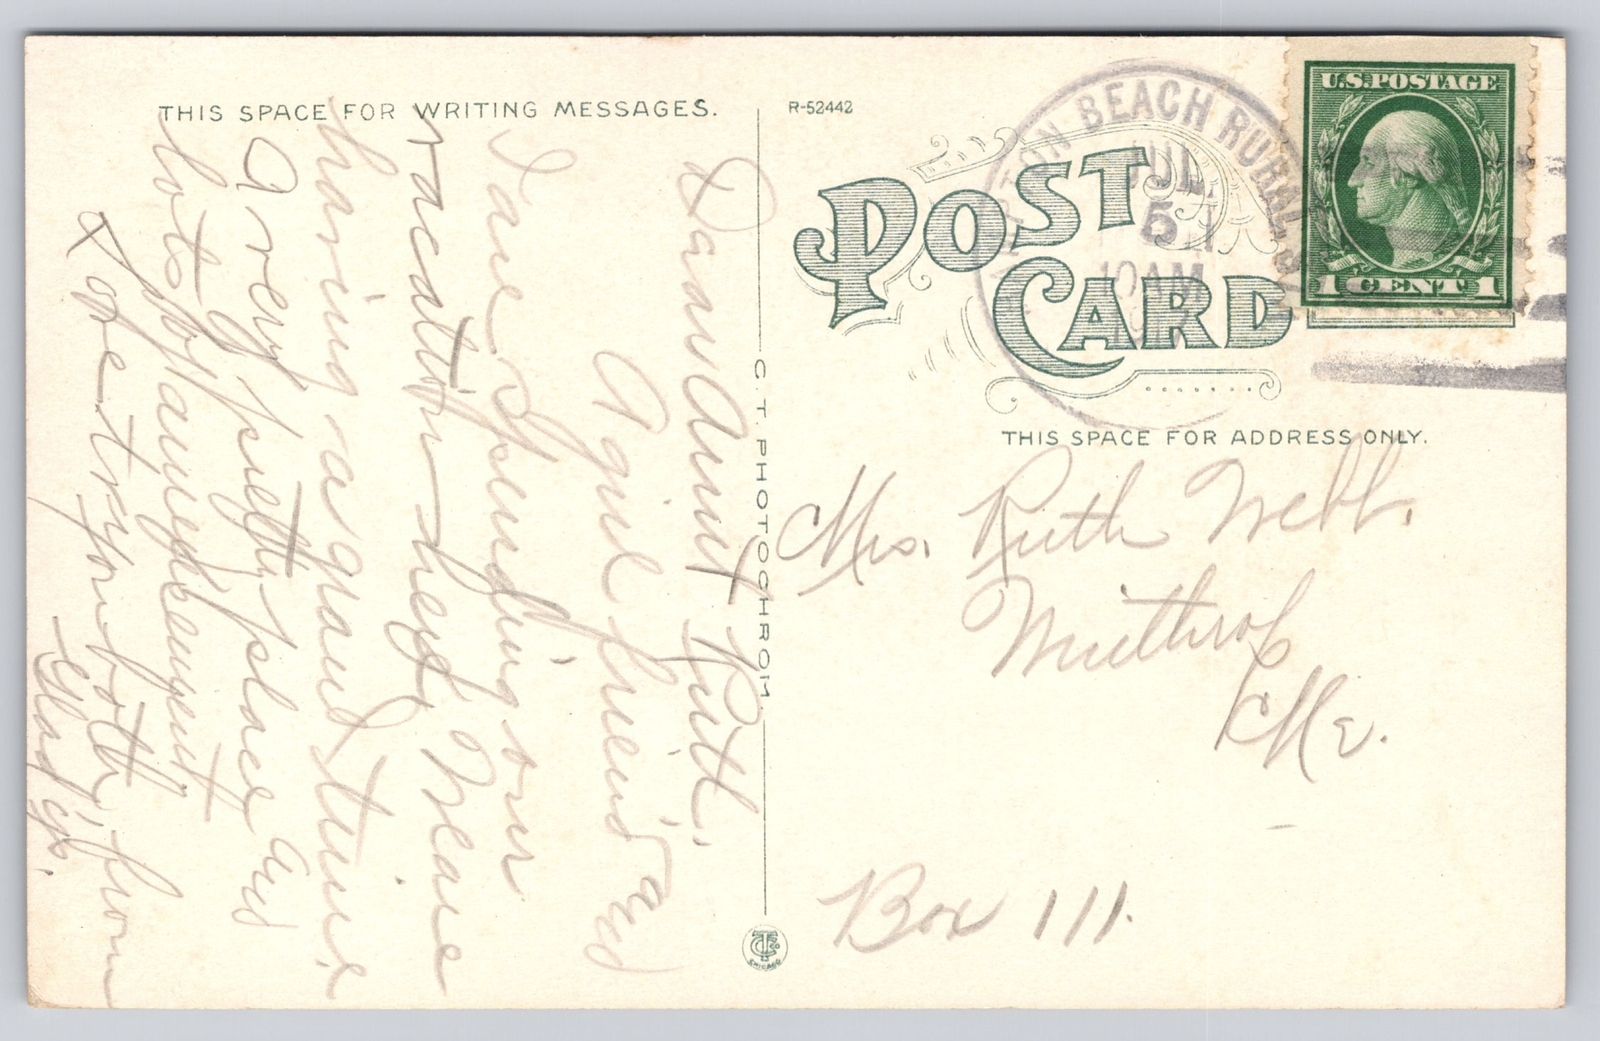 THIS SPACE FOR WRITING MESSAGES.
Dear Aunt Ruth.
A girl friend and
I are spending our
vacation here. We are
having a grand time.
A very pretty place and
lots of amusement
Love to you both, from
Gladys.
C. T. PHOTOCHROM
CHICAGO
R-52442
POST
CARD
BEACH RURAL
JUL
5
10 AM
U.S. POSTAGE
1 CENT 1
THIS SPACE FOR ADDRESS ONLY.
Mrs. Ruth Webb.
Winthrop
Me.
Box 111.